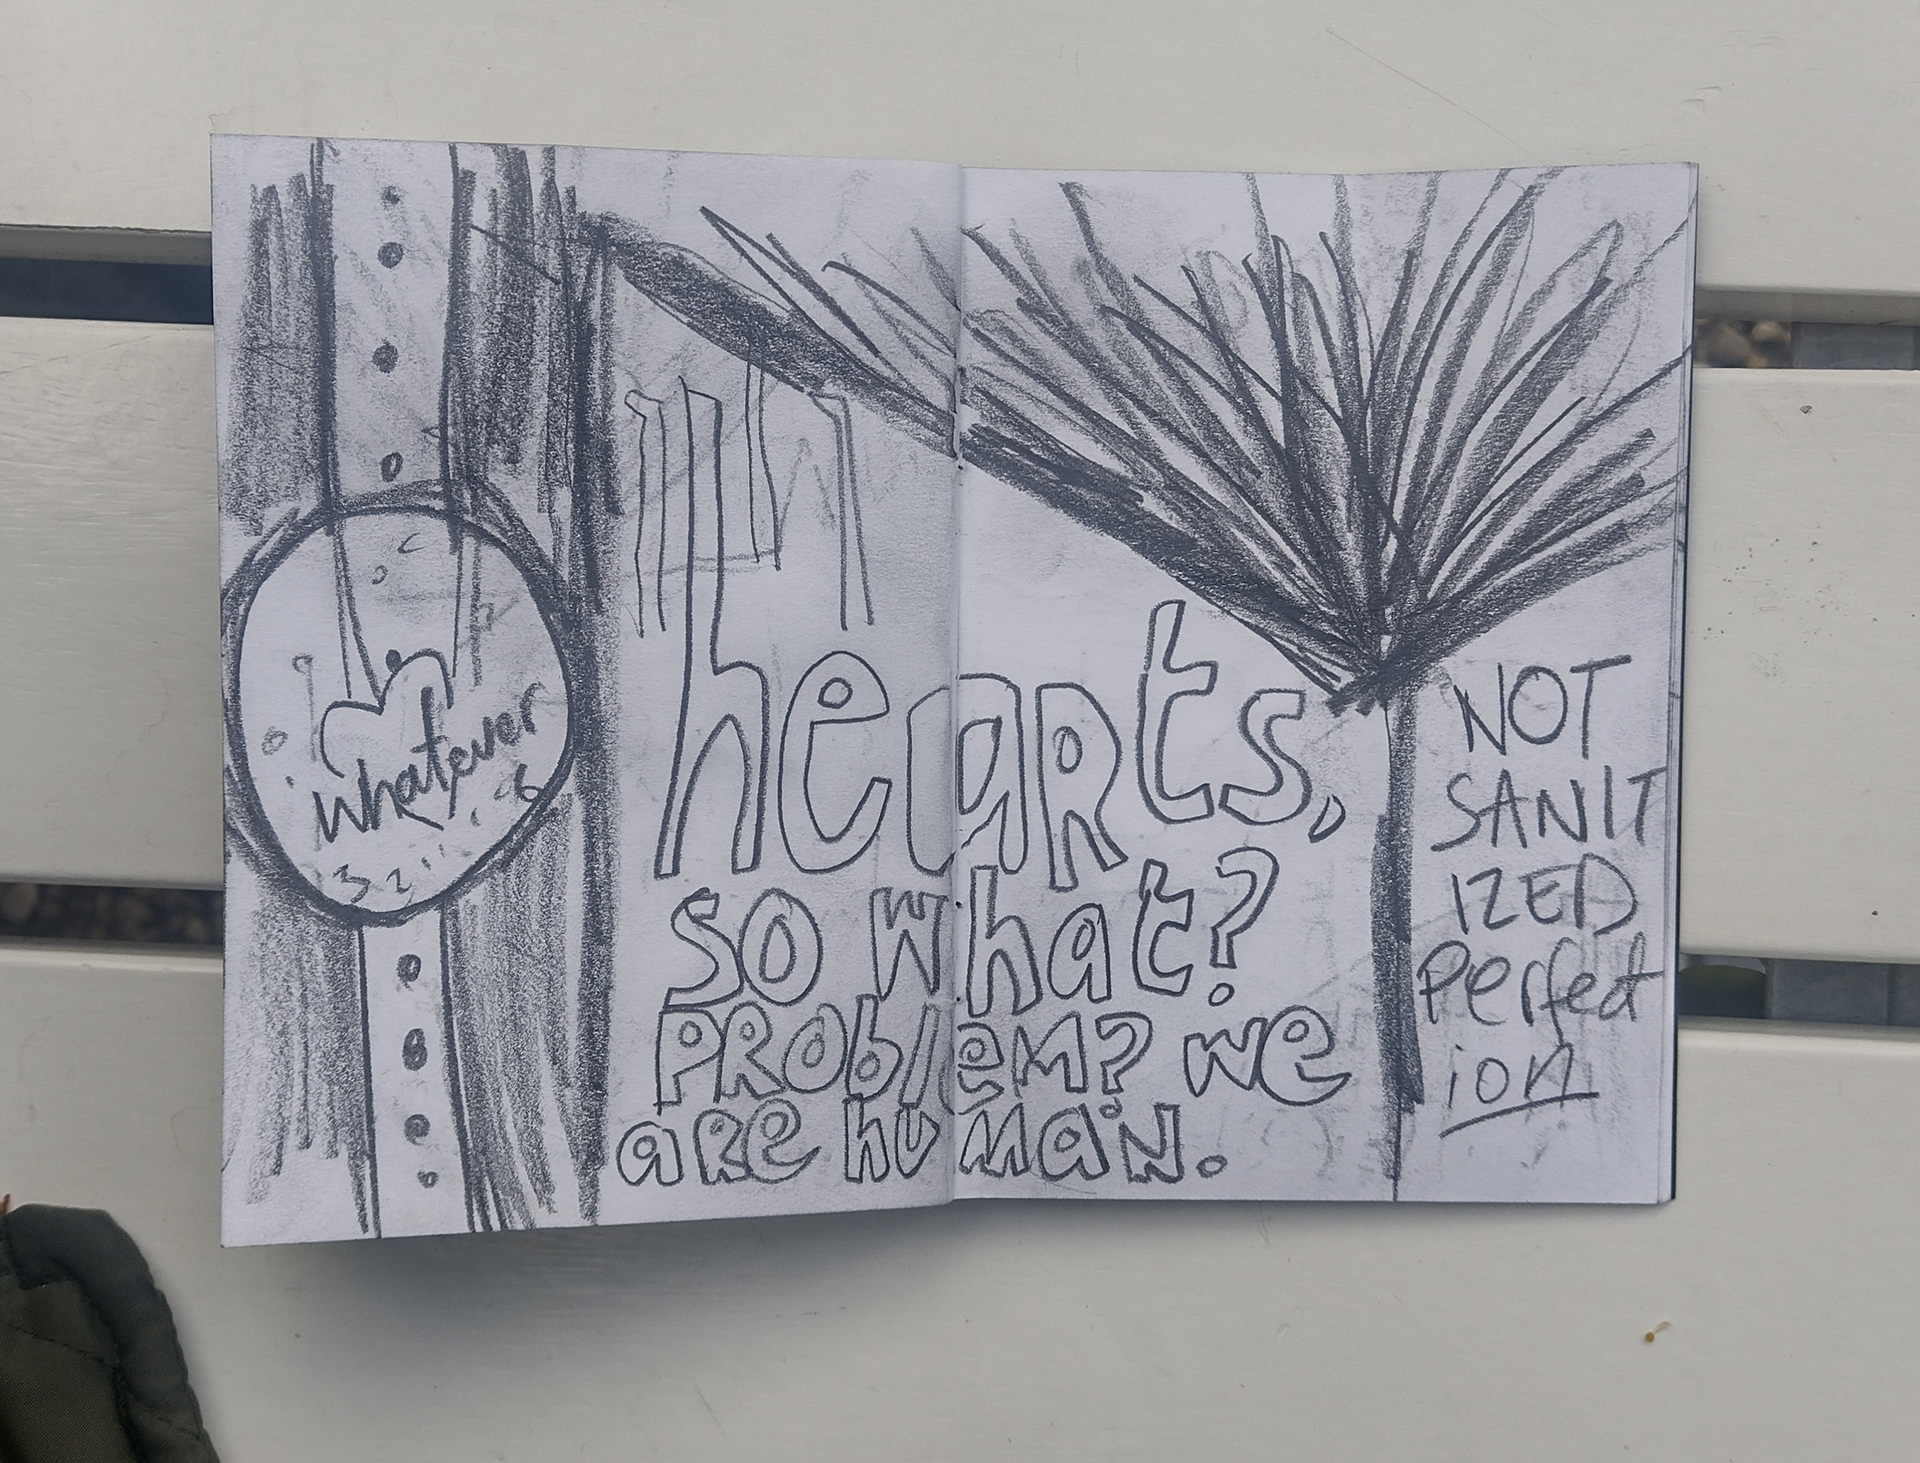 whatever
6
3 2
hearts,
so what?
PRoblem? we
aRe human.
NOT
SANIT
IZED
Perfect
ion